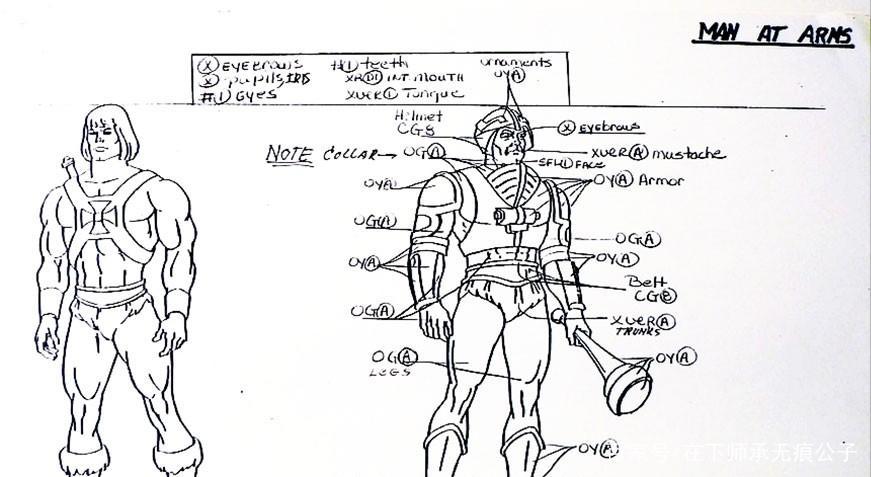 MAN AT ARMS
Ⓧ EYEBROWS
Ⓧ pupils
#1) Eyes
#1) teeth
XR(D1) INT. MOUTH
XVER① Tongue
ornaments
OYⒶ
Helmet
CG8
Ⓧ eyebrows
NOTE COLLAR → OGⒶ
XVERⒶ mustache
FACE
OYⒶ
OYⒶ Armor
OGⒶ
OGⒶ
OYⒶ
OYⒶ
Belt
CG⑧
OGⒶ
XVERⒶ
TRUNKS
OGⒶ
LEGS
OYⒶ
OYⒶ
在下师承无痕公子